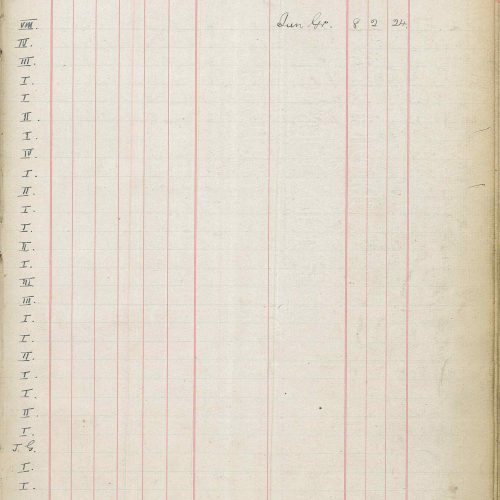 VIII. Jun Gr. 8 2 24
IV.
III.
I.
I
II.
I.
IV.
I.
II.
I.
I.
II.
I.
III
III.
I.
I.
II.
I.
I.
II.
I.
J. G.
I.
I.